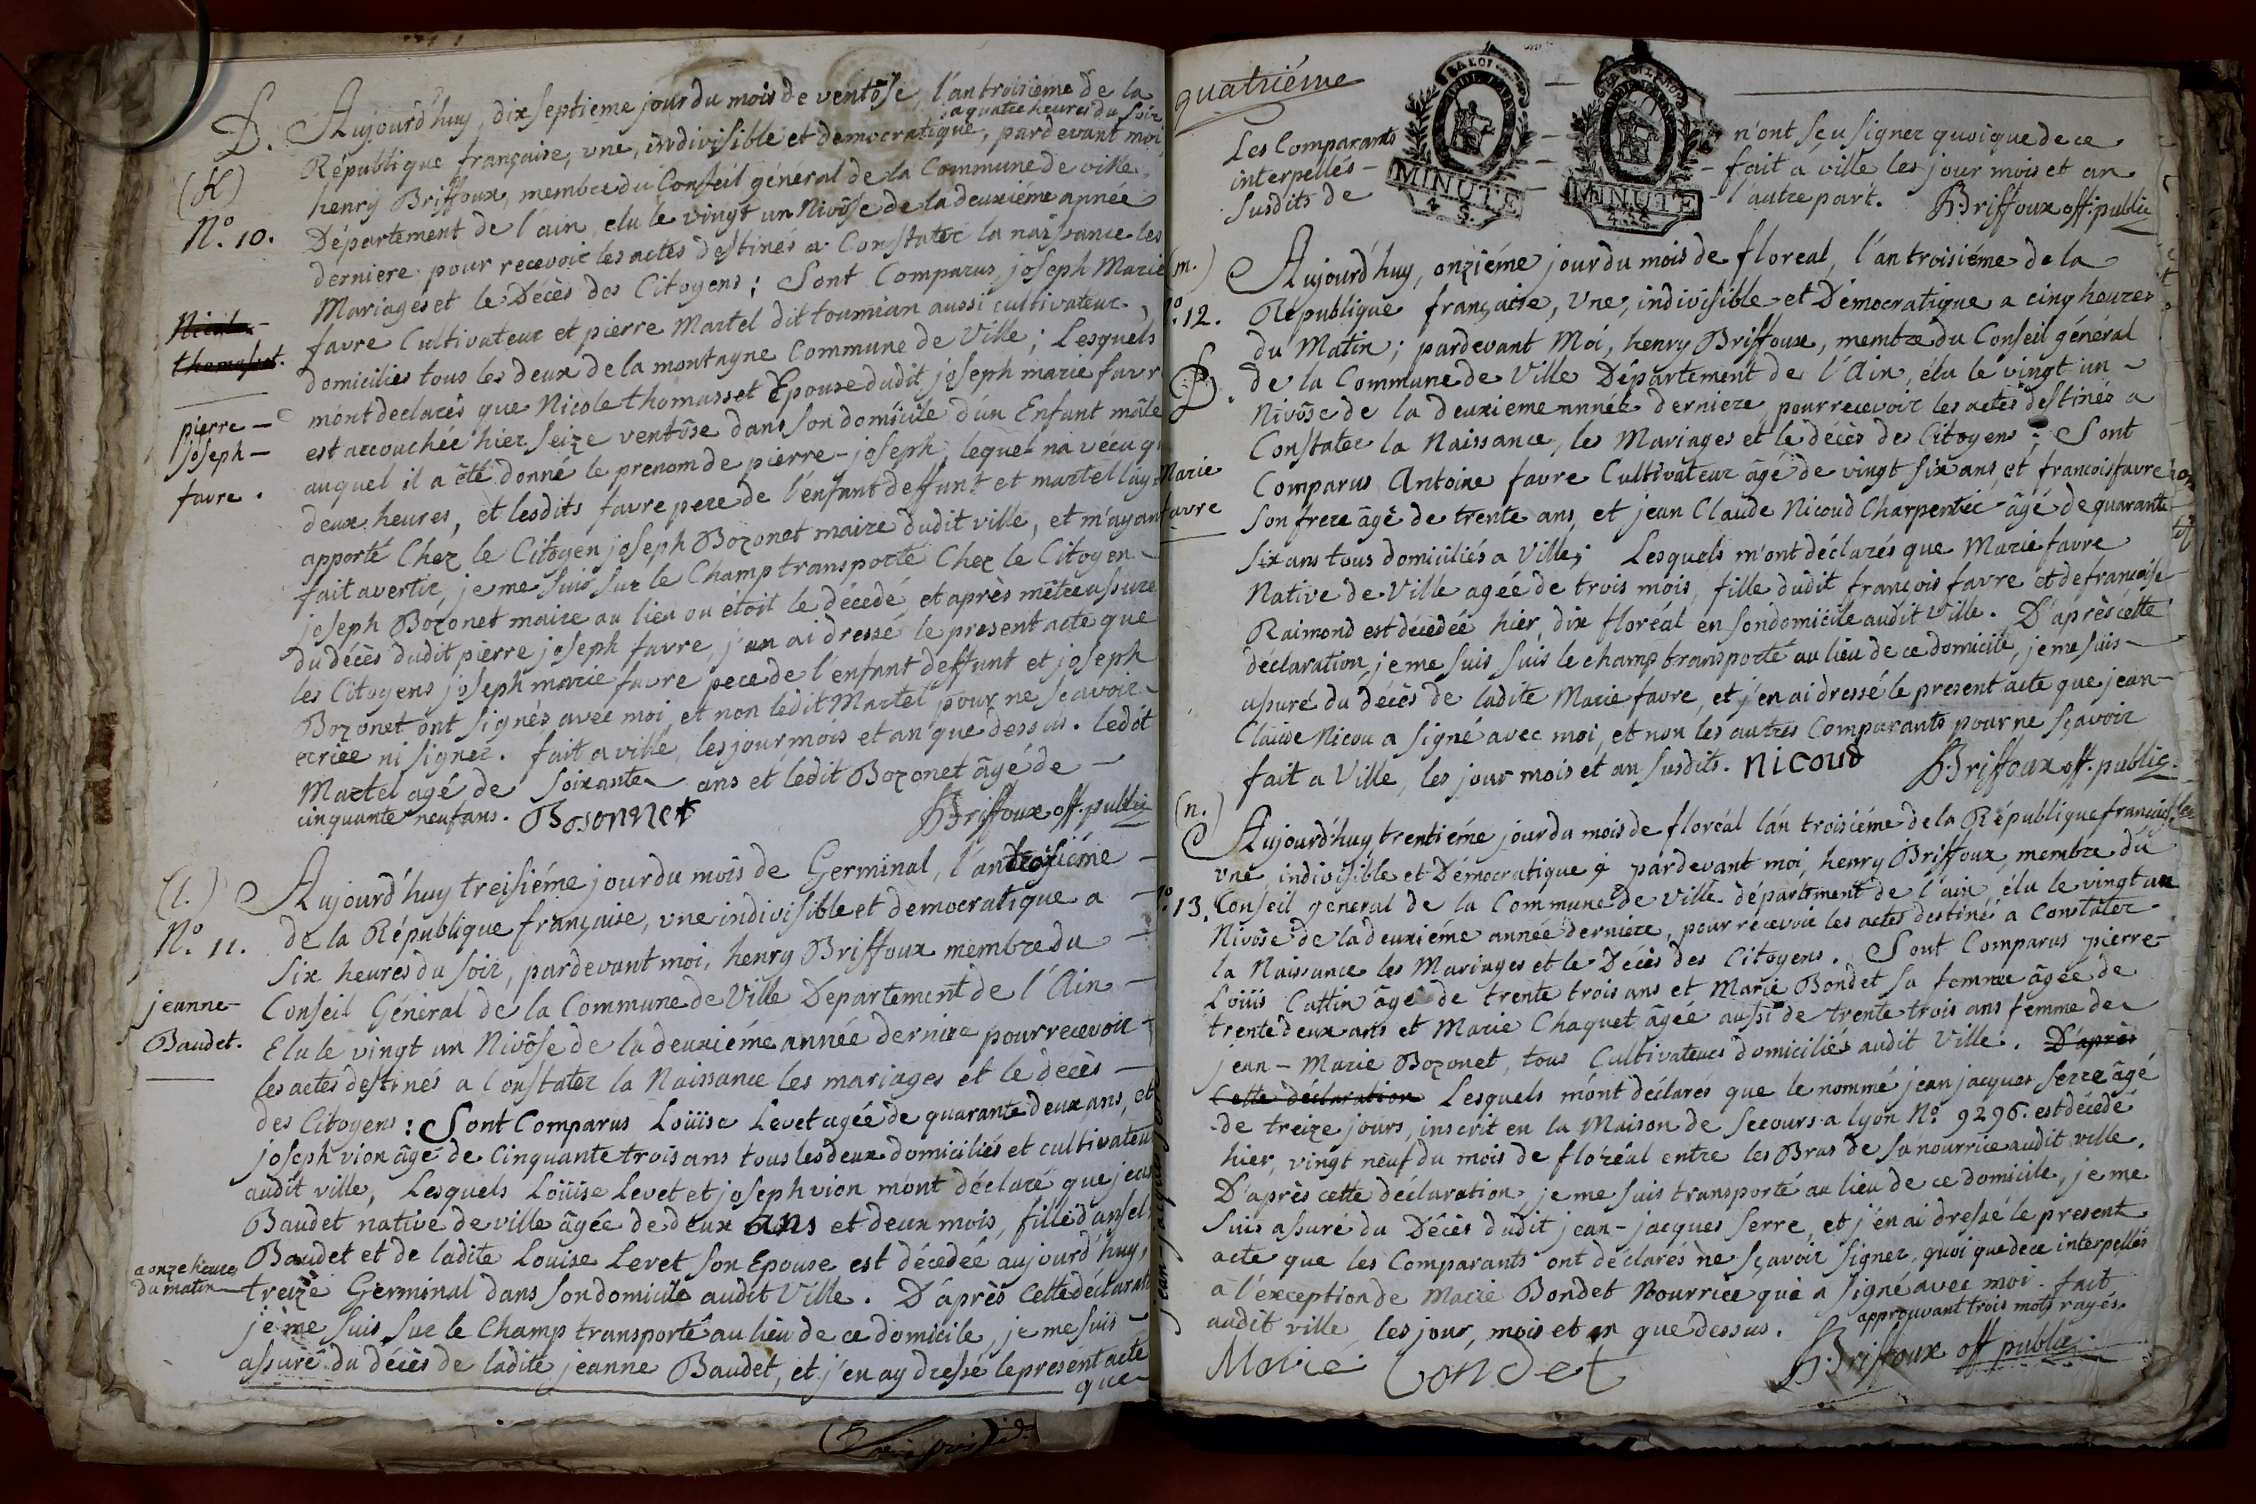 D. Aujourd'huy, dix septieme jour du mois de ventôse, l'an troisieme de la
a quatre heures du soir
République française, une, indivisible et democratique, pardevant moi,
(K)
henry Briffoux, membre du Conseil général de la Commune de ville,
N.º 10.
Département de l'ain, elu le vingt un Nivôse de la deuxiéme année
derniere pour recevoir les actes destinés a Constater la naissance les
Mariages et le Décès des Citoyens; Sont Comparus, joseph Marie
Nicole
thomasset.
favre Cultivateur et pierre Martel dit toumian aussi cultivateur,
domiciliés tous les deux de la montagne Commune de Ville; Lesquels
m'ont declarés que Nicole thomasset Epouse dudit joseph marie favr
pierre –
joseph –
favre.
est accouchée hier seize ventôse dans son domicile d'un Enfant mâle
auquel il a êté donné le prenom de pierre-joseph, lequel na vecu q
deux heures, et lesdits favre pere de l'enfant deffunt et martel l'ay
apporté Chez le Citoyen joseph Bozonet maire dudit ville, et m'ayant
fait avertir, je me suis sur le Champ transporté Chez le Citoyen
joseph Bozonet maire au lieu ou étoit le décédé, et après m'être assuré
du décès dudit pierre joseph favre, j'en ai dressé le present acte que
les Citoyens joseph marie favre pere de l'enfant deffunt et joseph
Bozonet ont signés avec moi, et non ledit Martel pour ne sçavoir
ecrire ni signer. fait a ville, les jour mois et an que dessus. ledit
Martel agé de soixante ans et ledit Bozonet âgé de –
cinquante neuf ans. Bosonnet HBriffoux off. public
(l.) Aujourd'huy treisiéme jour du mois de Germinal, l'an troisiéme –
N.º 11. de la République française, une indivisible et democratique a –
six heures du soir, pardevant moi, henry Briffoux membre du –
jeanne –
Baudet.
Conseil Général de la Commune de Ville Departement de l'Ain –
Elu le vingt un Nivôse de la deuxiéme année derniere pour recevoir –
les actes destinés a Constater la Naissance les mariages et le décès –
des Citoyens: Sont Comparus Loüise Levet agée de quarante deux ans, et
joseph vion âgé de Cinquante trois ans tous les deux domiciliés et cultivateur
audit ville, Lesquels Loüise Levet et joseph vion m'ont déclaré que jean
Baudet native de ville âgée de deux ans et deux mois, fille d'ansel
Baudet et de ladite Louise Levet son Epouse est décédée aujourd'huy,
a onze heures
du matin
treize Germinal dans son domicile audit Ville. D'après Cette déclarat
je me suis sur le Champ transporté au lieu de ce domicile, je me suis –
assuré du décès de ladite jeanne Baudet, et j'en ay dressé le present acte
que
quatriéme
MINUTE
4 S.
MINUTE
Les Comparants n'ont sçu signer quoique de ce
interpellés – fait a ville les jour mois et an
susdits de l'autre part. HBriffoux off. public
(m.) Aujourd'huy, onziéme jour du mois de floreal, l'an troisiéme de la
12. République française, Une, indivisible et Démocratique a cinq heures
du Matin; pardevant Moi, henry Briffoux, membre du Conseil général
D. de la Commune de Ville Département de l'Ain, élu le vingt un –
Nivôse de la deuxieme année derniere, pour recevoir les actes destinés a
Constater la Naissance, les Mariages et le décès des Citoyens; Sont
Marie
favre
Comparus Antoine favre Cultivateur âgé de vingt six ans, et francois favre
son frere âgé de trente ans, et jean Claude Nicoud Charpentier âgé de quarante
six ans tous domiciliés a Ville; Lesquels m'ont déclarés que Marie favre
Native de Ville agée de trois mois, fille dudit françois favre et de françoise
Raimond est décédée hier, dix floréal en son domicile audit Ville. D'après cette
déclaration, je me suis suis le champ transporté au lieu de ce domicile, je me suis –
assuré du décès de ladite Marie favre, et j'en ai dressé le present acte que jean –
Claude Nicou a signé avec moi, et non les autres Comparants pour ne sçavoir
fait a Ville, les jour mois et an susdits. nicoud HBriffoux off. public.
(n.) Aujourd'huy trentiéme jour du mois de floréal l'an troisiéme de la République française
une indivisible et Démocratique, pardevant moi, henry Briffoux, membre du
13. Conseil general de la Commune de Ville département de l'ain, élu le vingt un
Nivôse de la deuxiéme année derniere, pour recevoir les actes destinés a Constater
la Naissance les Mariages et le Décès des Citoyens. Sont Comparus pierre
Loüis Cattin âgé de trente trois ans et Marie Bondet sa femme âgée de
trente deux ans et Marie Chaquet âgée aussi de trente trois ans femme de
jean – Marie Bozonet, tous Cultivateurs domiciliés audit Ville. D'après
Cette déclaration Lesquels m'ont déclarés que le nommé jean jacques Serre âgé
de treize jours, inscrit en la Maison de Secours a Lyon N.º 9296. est décedé
hier, vingt neuf du mois de floréal entre les Bras de sa nourrice audit ville.
jean-jacques
D'après cette déclaration, je me suis transporté au lieu de ce domicile, je me
suis assuré du Décès dudit jean-jacques Serre, et j'en ai dressé le present
acte que les Comparants ont déclarés ne sçavoir signer, quoi que de ce interpellés
a l'exception de Marie Bondet Nourrice qui a signé avec moi. fait
audit ville, les jour, mois et an que dessus. approuvant trois mots rayés.
Marie bondet HBriffoux off public.